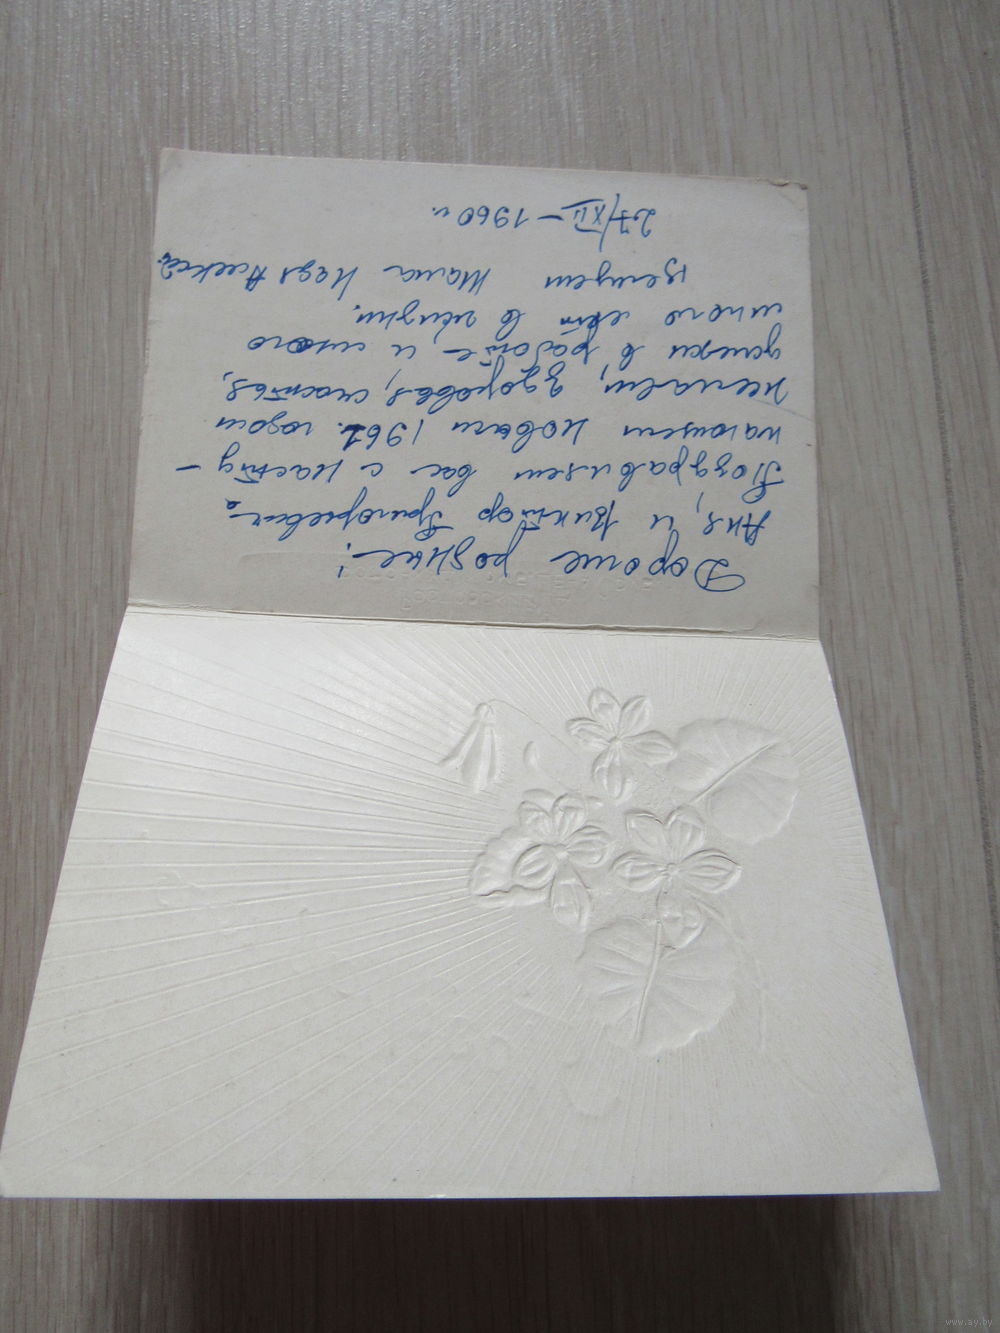 Дорогие родные!
Аня, и Виктор Григоревич
Поздравляем вас с насту-
пающем Новым 1961 годом
желаем, здоровья, счастья,
успехи в работе и много
много лет в жизни.
целуем Маша Надя Алексей.
27/XII – 1960 г.
www.ay.by